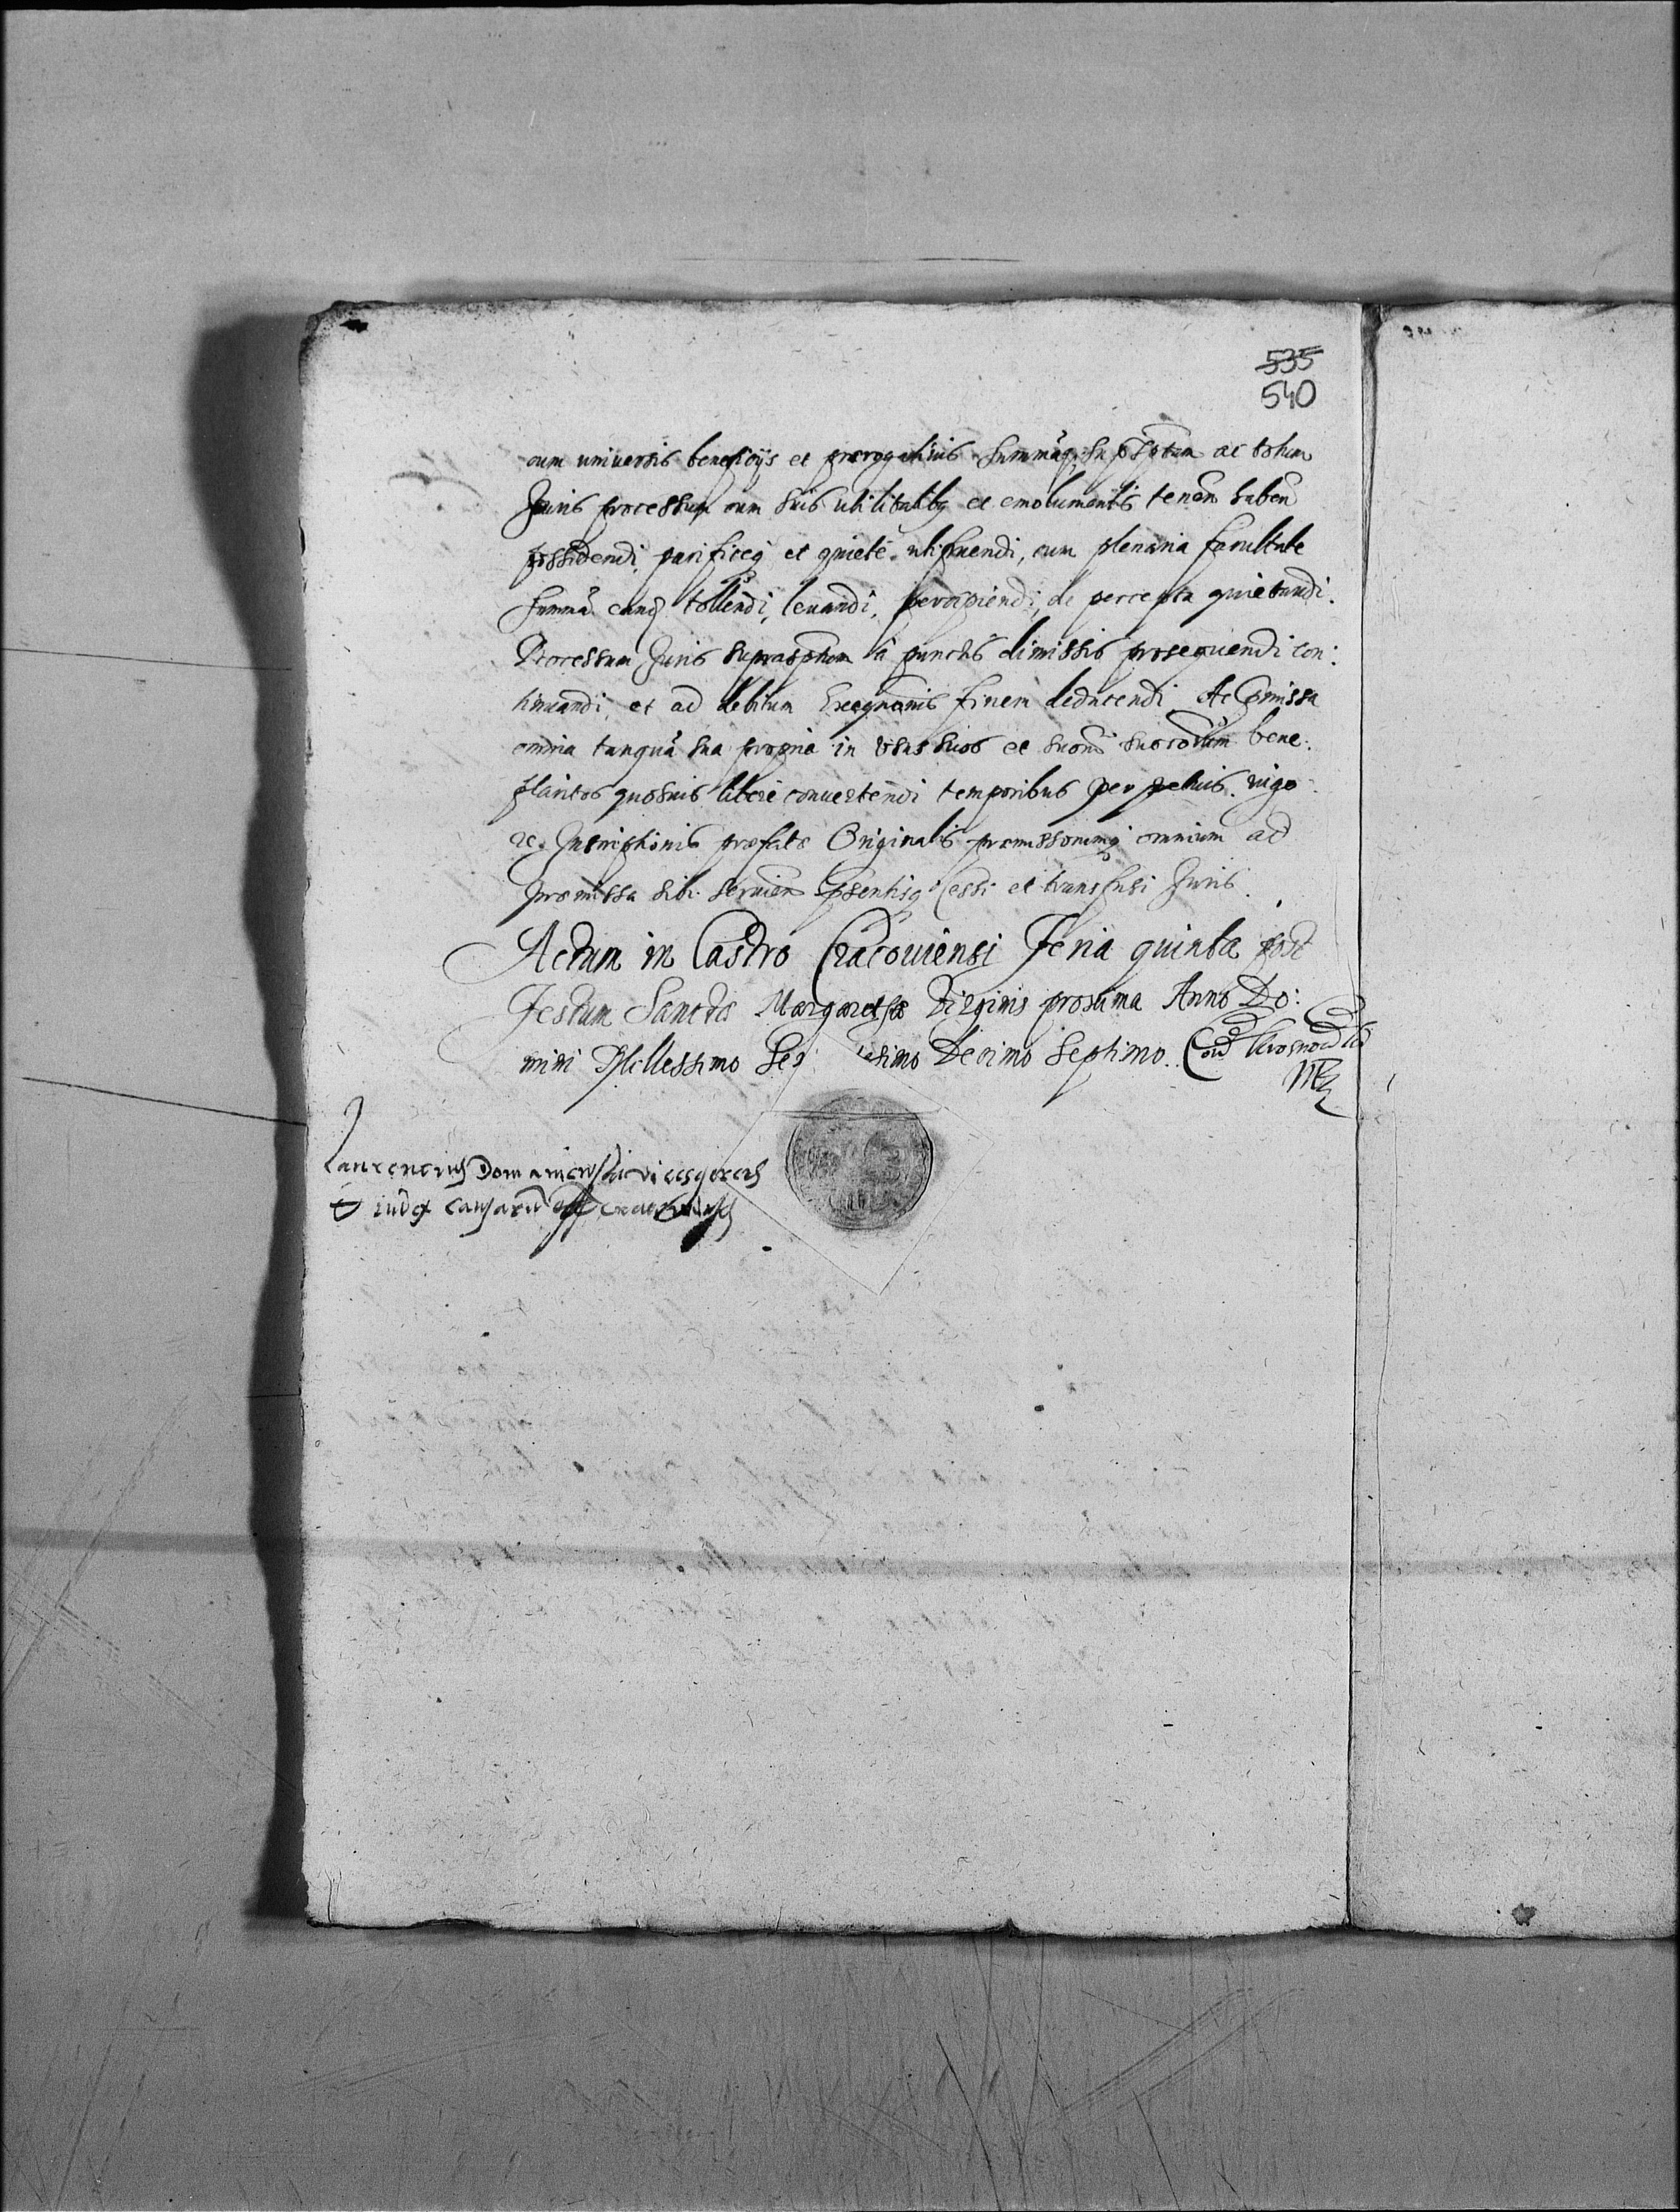 535
540
cum universis beneficijs et prærogativis Summāq; supsptam ac totum
Juris processum cum suis utilitatibq et emolumentis tenen haben
possidendi, pacificeq et quietè utifruendi, cum plenaria facultate
Summā eandq tollendi, levandi, percipiendi, de percepta quietandi.
Processum Juris suprasptum à punctis dimissis prosequendi con:
tinuandi, et ad debitum Exequnōnis finem deducendi Ac pmissa
omnia tanquā sua propria in usus suos et suorū succorum bene:
placitos quosuis liberè convertendi temporibus perpetuis. vigo
re Inscriptionis præfatæ Originalis præmissorumq omnium ad
præmissa sibi servien psentisq Cessi et transfusi Juris.
Actum in Castro Cracoviensi Feria quinta post
Festum Sanctæ Margarethæ Virginis proxima Anno Do:
mini Millessimo Sex esimo Decimo Septimo.
Laurencius Domaniewski vicesgerens
et iudex causarū off Cracoviensis